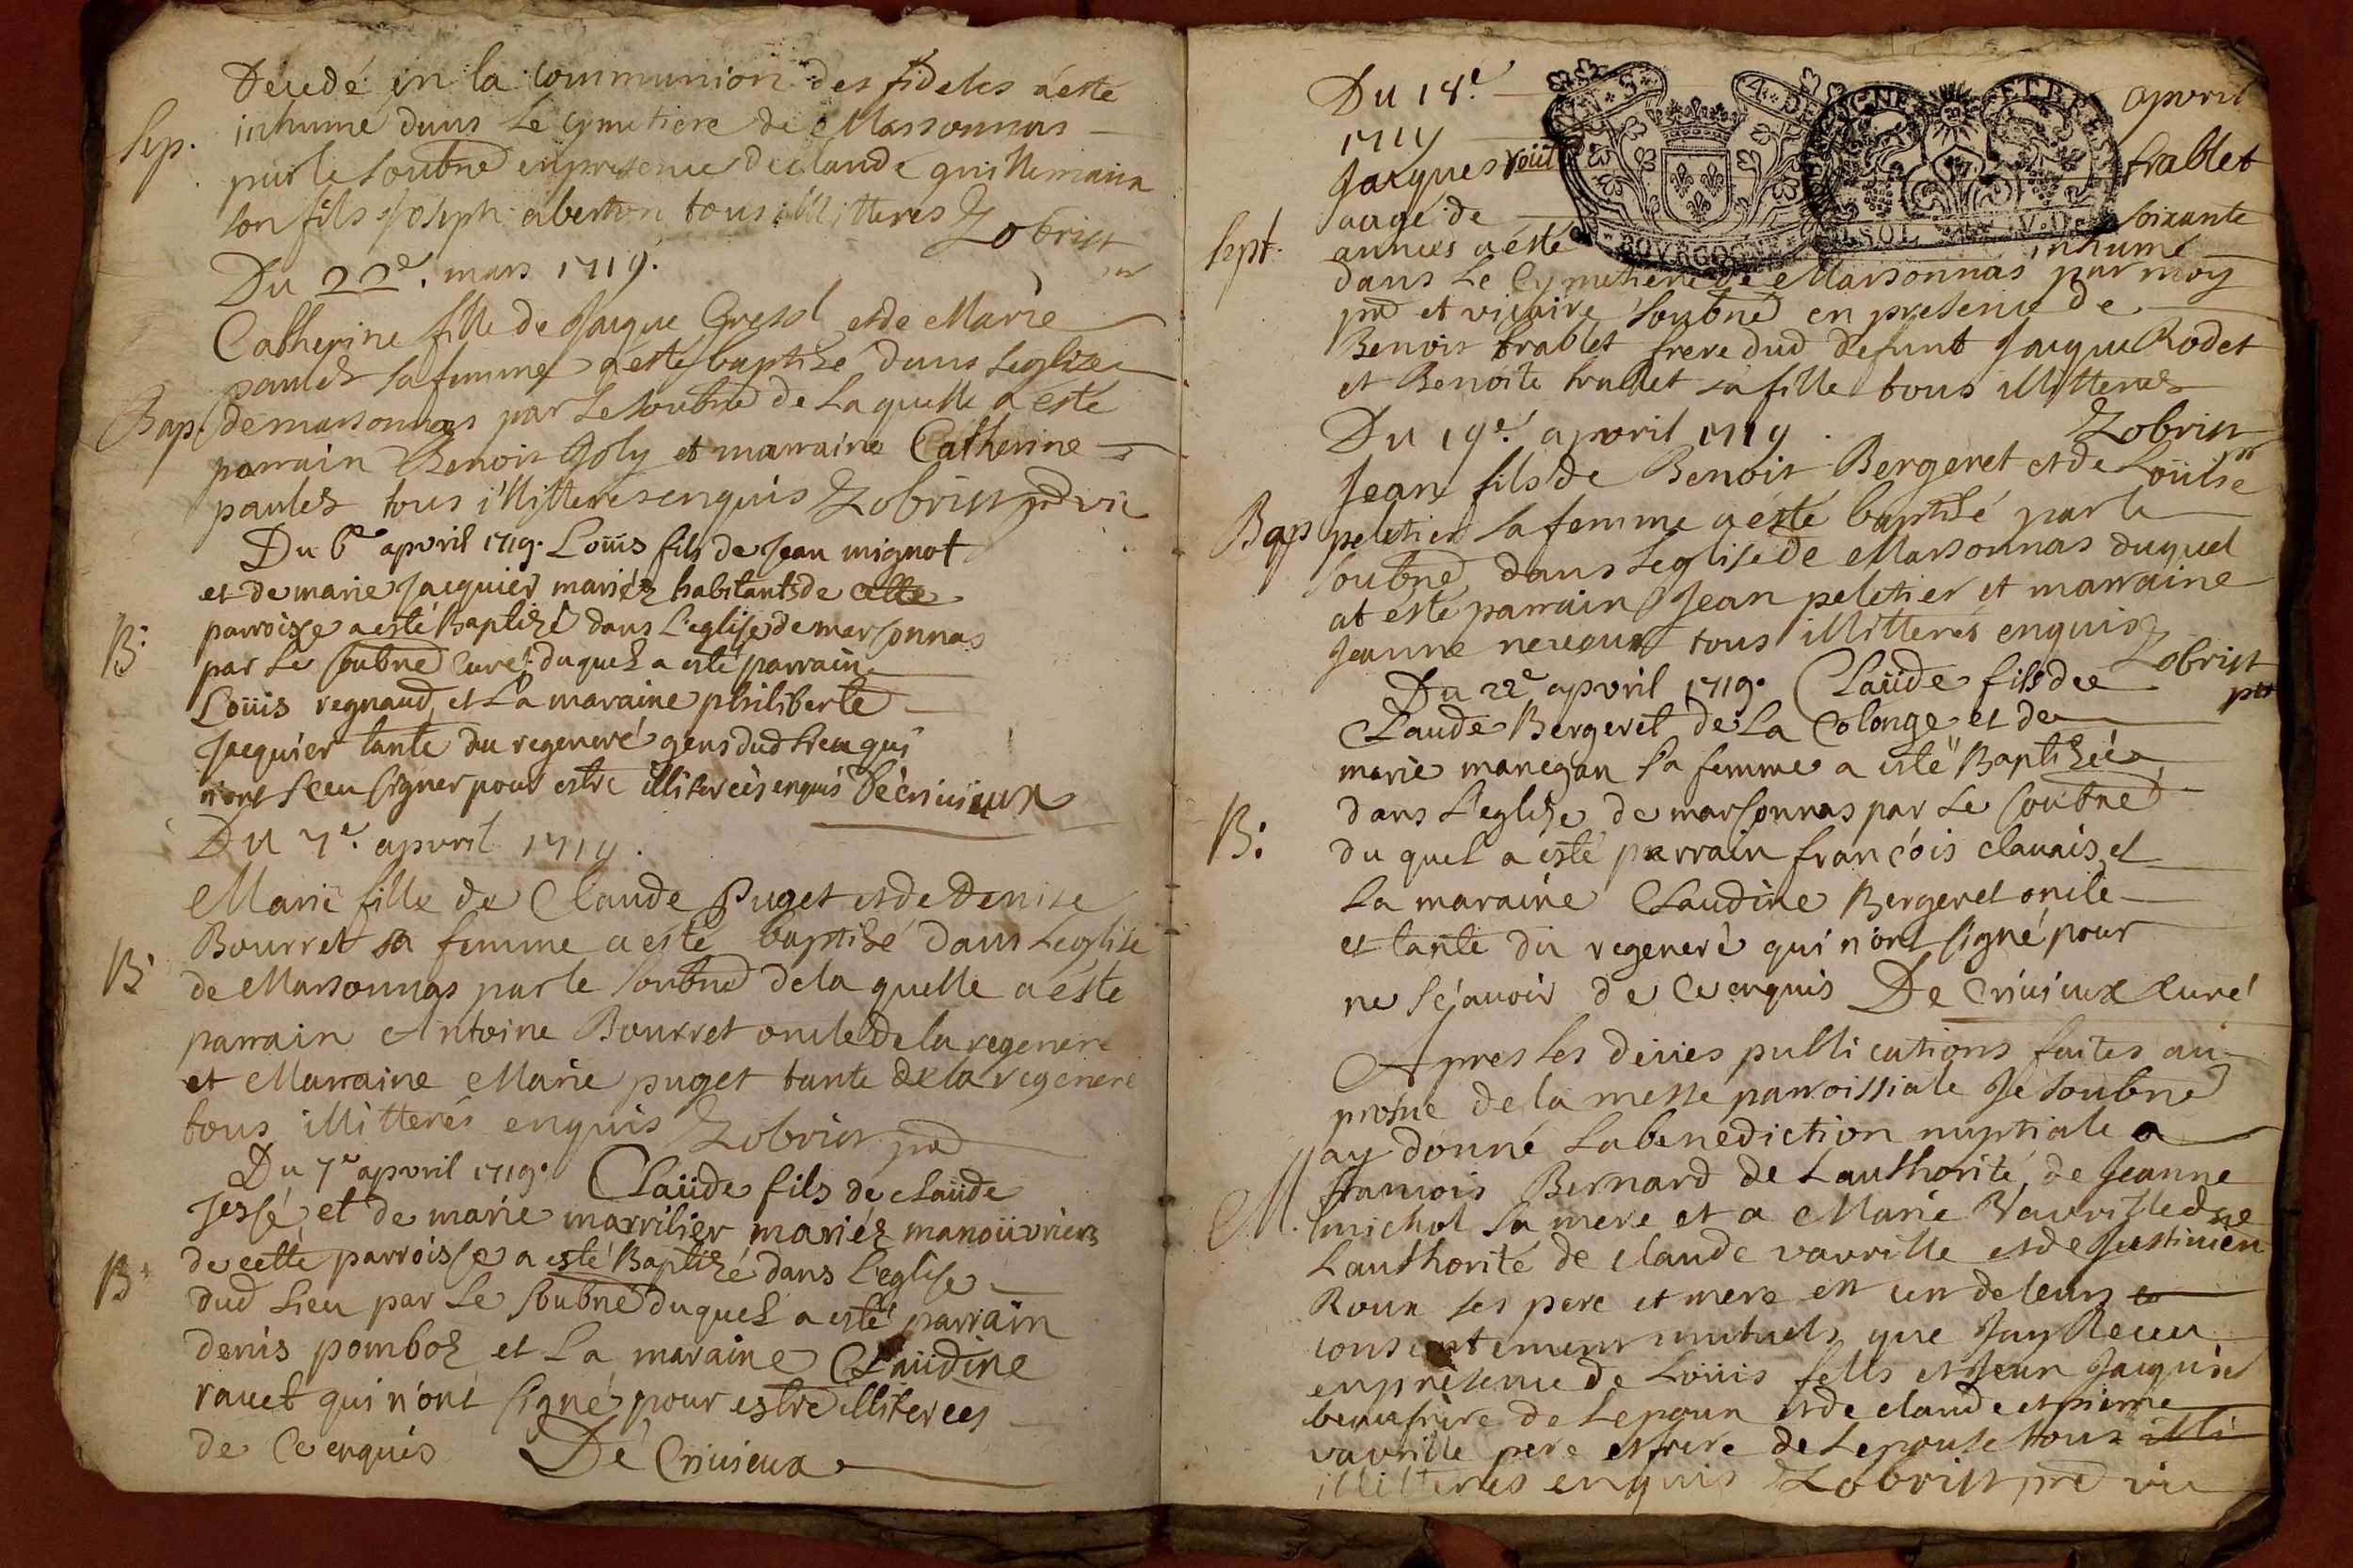 Decedé en la communion des fideles a esté
Sep. inhumé dans le cymetiere de Marsonnas
par le soubné en presence de claude guillemain
son fils Joseph aberton tous illitteres Zobrist
Du 22e. mars 1719.
Catherine fille de Jaque et de Marie
paulet sa femme a esté baptisé dans leglise
Bap. de marsonnas par le soubné de laquelle a esté
parrain Benoit Joly et marraine Catherine
paulet tous illitteres enquis Zobrist pre vic
Du 6e apvril 1719. Loüis fils de Jean mignot
et de marie Jacquier mariéz habitants de cette
B: parroisse a esté Baptizé dans l'eglise de marsonnas
par le soubné Curé. duquel a esté parrain
Loüis regnaud, et la maraine philiberte
Jacquier tante du regeneré gens dud lieu qui
n'ont sceu signer pour estre illiterées enquis De Crivieux
Du 7e. apvril 1719.
Marie fille de Claude Puget et de Denise
Bourret sa femme a esté baptisé dans leglise
B de Marsonnas par le soubné de la quelle a esté
parrain Antoine Bourret oncle de la regeneré
et Marraine Marie puget tante de la regeneré
tous illitterés enquis Zobrist pre
Du 7e apvril 1719. Claüde fils de claüde
Jessé et de marie marrilier mariéz manoüvriers
B: de cette parroisse a esté Baptizé dans l'eglise
dud lieu par le soubné duquel a esté parrain
denis pomboz et la maraine Claüdine
ravet qui n'ont signé pour estre illiterees
de ce enquis De Crivieux
Du 18e. apvril
1719
Jacques trablet
aagé de soixante
Spt. années a esté inhumé
BOVRGOGNE
dans le Cymetiere de Marsonnas par moy
pre et vicaire soubné en presence de
Benoit trablet frere dud defunt Jacque Rodet
et Benoite trablet sa fille tous illitteres
Du 19e. apvril 1719. Zobrist
Jean fils de Benoit Bergeret et de Loüise
Bap peletier sa femme a esté baptisé par le
soubné dans leglise de Marsonnas duquel
at esté parrain Jean peletier et marraine
Jeanne tous illitterés enquis Zobrist
Du 22e apvril 1719. Claüde fils de
Claude Bergeret de la Colonge et de
marie manegan sa femme a esté Baptizée
dans l'eglize de marsonnas par le soubné
B: du quel a esté parrain françois clauais, et
la maraine Claudine Bergeret oncle
et tante du regeneré qui n'ont signé pour
ne sçavoir de ce enquis De Crivieux Curé
Apres les publications faites au
prosne de la messe parroissiale Je soubné
ay donné la benediction nuptiale a
francois Bernard de Lauthorité de Jeanne
M. michol sa mere et a Marie Vavrille de
Lauthorité de claude vavrille et de
Roux ses pere et mere en un de leurs
consentement mutuels que Jay Receu
en presence de Loüis fells et Jean Jacquier
beaufrere de Lepoux et de claude et pierre
vavrille pere et frere de Lepouse tous illi
illitteres enquis Zobrist pre vic